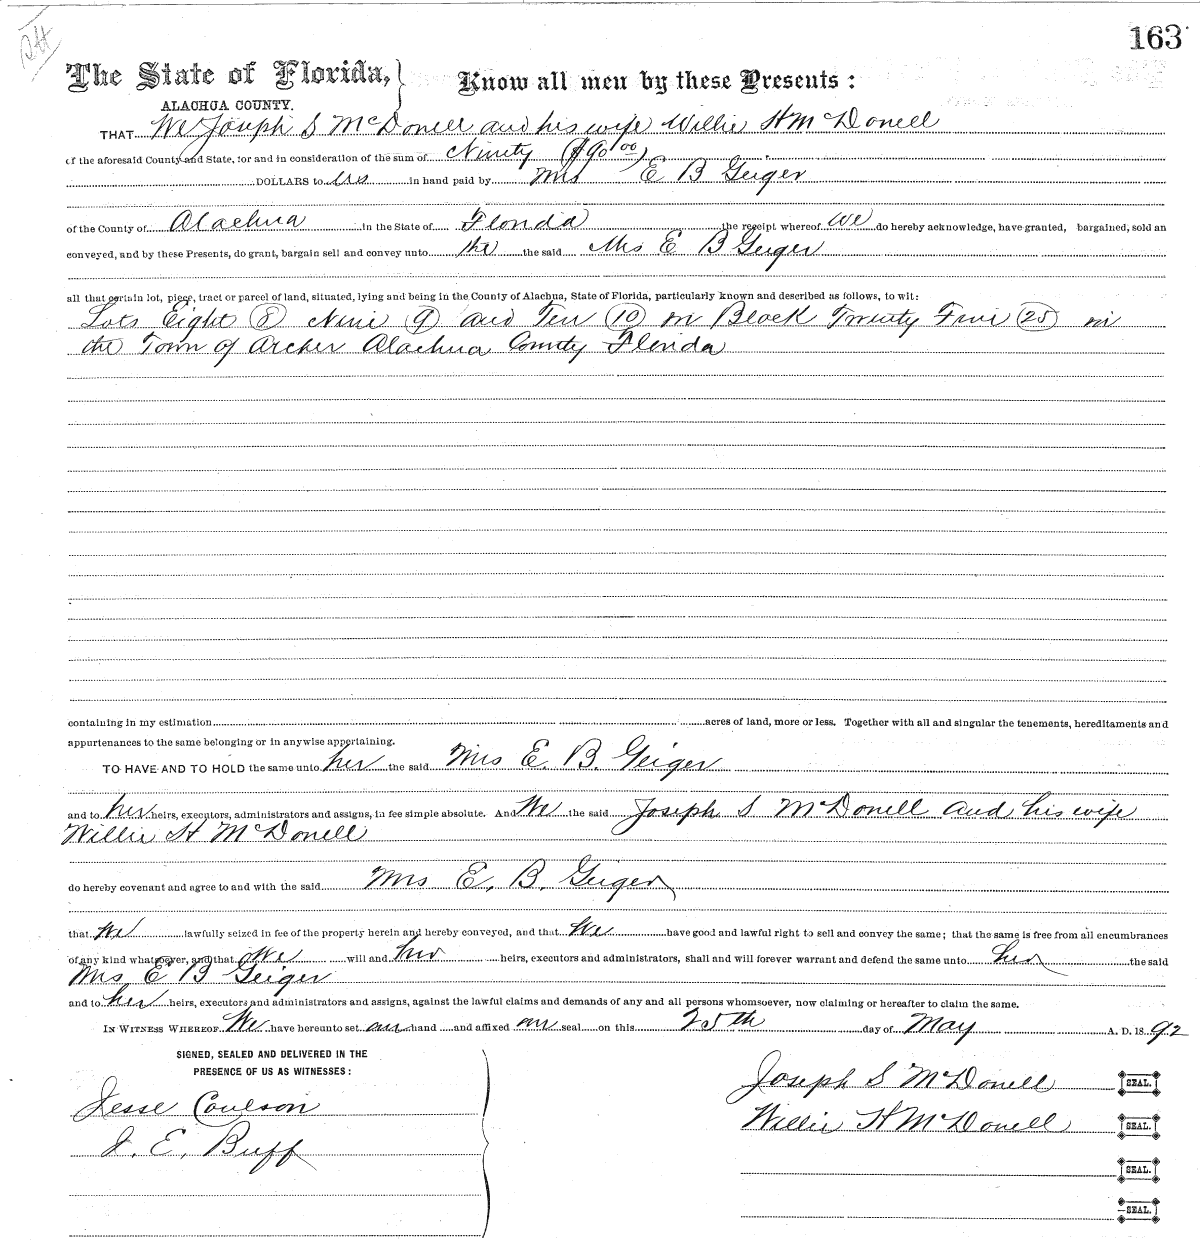 163
The State of Florida, Know all men by these Presents:
ALACHUA COUNTY.
THAT We Joseph S McDonell and his wife Willie H McDonell
of the aforesaid County and State, for and in consideration of the sum of Ninety ($90.00)
DOLLARS to us in hand paid by Mrs E B Geiger
of the County of Alachua in the State of Florida the receipt whereof we do hereby acknowledge, have granted, bargained, sold an
conveyed, and by these Presents, do grant, bargain sell and convey unto the the said Mrs E B Geiger
all that certain lot, piece, tract or parcel of land, situated, lying and being in the County of Alachua, State of Florida, particularly known and described as follows, to wit:
Lots Eight (8) Nine (9) and Ten (10) in Block Twenty Five (25) in
the Town of Archer Alachua County Florida
containing in my estimation acres of land, more or less. Together with all and singular the tenements, hereditaments and
appurtenances to the same belonging or in anywise appertaining.
TO HAVE AND TO HOLD the same unto her the said Mrs E. B. Geiger
and to her heirs, executors, administrators and assigns, in fee simple absolute. And We the said Joseph S McDonell and his wife
Willie H McDonell
do hereby covenant and agree to and with the said Mrs E. B. Geiger
that We lawfully seized in fee of the property herein and hereby conveyed, and that We have good and lawful right to sell and convey the same; that the same is free from all encumbrances
of any kind whatsoever, and that We will and heirs, executors and administrators, shall and will forever warrant and defend the same unto her the said
Mrs E B Geiger
and to her heirs, executors and administrators and assigns, against the lawful claims and demands of any and all persons whomsoever, now claiming or hereafter to claim the same.
IN WITNESS WHEREOF We have hereunto set our hand and affixed our seal on this 25th day of May A. D. 1892
SIGNED, SEALED AND DELIVERED IN THE
PRESENCE OF US AS WITNESSES:
Joseph S McDonell SEAL.
Jesse Coulson
Willie H McDonell SEAL.
J. E. Buff
SEAL.
SEAL.